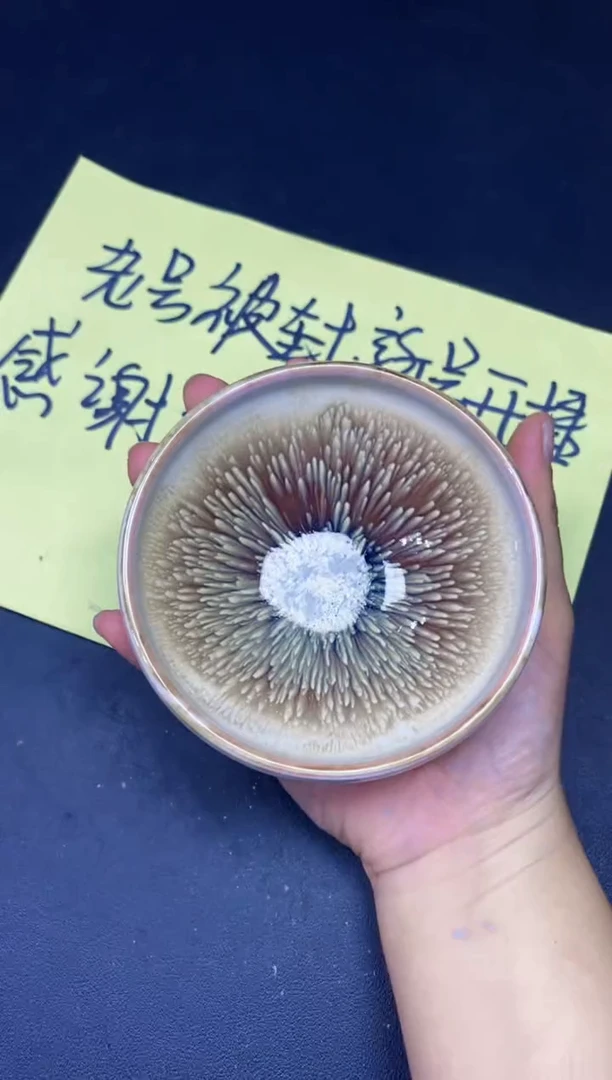 老号被封.新号开播
感谢